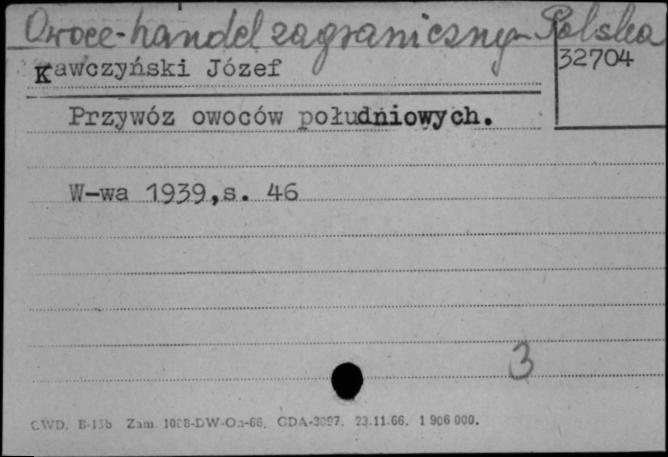 Owoce-handel zagraniczny Polska
32704
Kawczyński Józef
Przywóz owoców południowych.
W-wa 1939,s. 46
3
CWD. B-13b Zam. 1088-DW-On-66. GDA-3097. 23.11.66. 1 906 000.